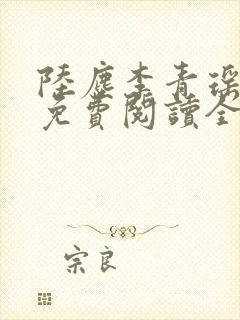 陸塵李青瑤
免費閱讀全
宗良